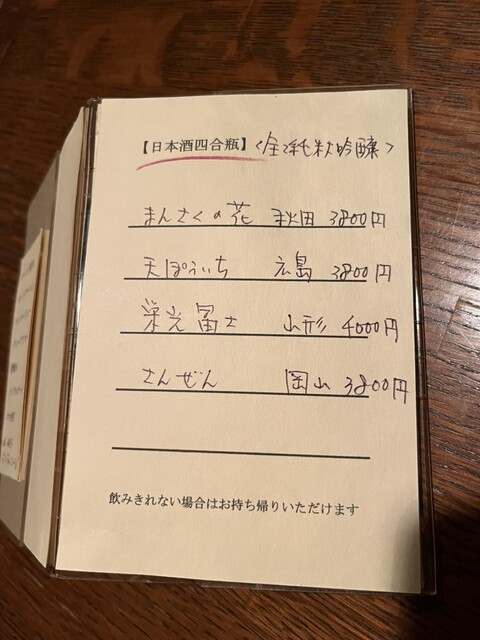 【日本酒四合瓶】〈全て純米吟醸〉
まんさくの花 秋田 3800円
天ぽういち 広島 3800円
栄光冨士 山形 4000円
さんぜん 岡山 3800円
飲みきれない場合はお持ち帰りいただけます